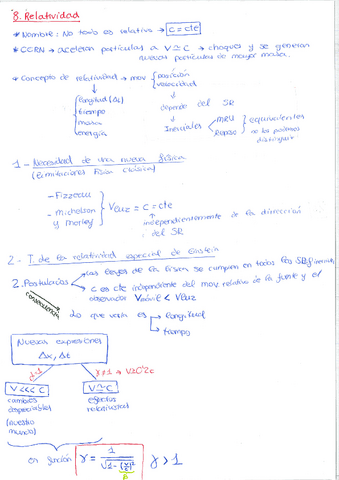 8. Relatividad
* Nombre: No todo es relativo → c = cte
* CERN → aceleran partículas a v ≃ c → choques y se generan
nuevas partículas de mayor masa.
* Concepto de relatividad → mov { posición
velocidad
longitud (Δx)
tiempo
masa
energía
depende del SR
Inerciales < MRU
Reposo } equivalentes
no los podemos
distinguir
1 - Necesidad de una nueva física
(Limitaciones física clásica)
- Fizzeau
- Michelson
y Morley
} Vluz = c = cte
independientemente de la dirección
del SR
2 - T. de la relatividad especial de Einstein
2. Postulados
→ las leyes de la física se cumplen en todos los SR
→ c es cte independiente del mov relativo de la fuente y el
observador Vmóvil < Vluz
consecuencia
Lo que varía es → longitud
→ tiempo
Nuevas expresiones
Δx, Δt
γ≠1 → V≥0'2c
V <<< C
V ≃ C
cambios
despreciables
(nuestro
mundo)
efectos
relativistas
en función
γ = 1 / √1 - (v/c)²
β
γ > 1